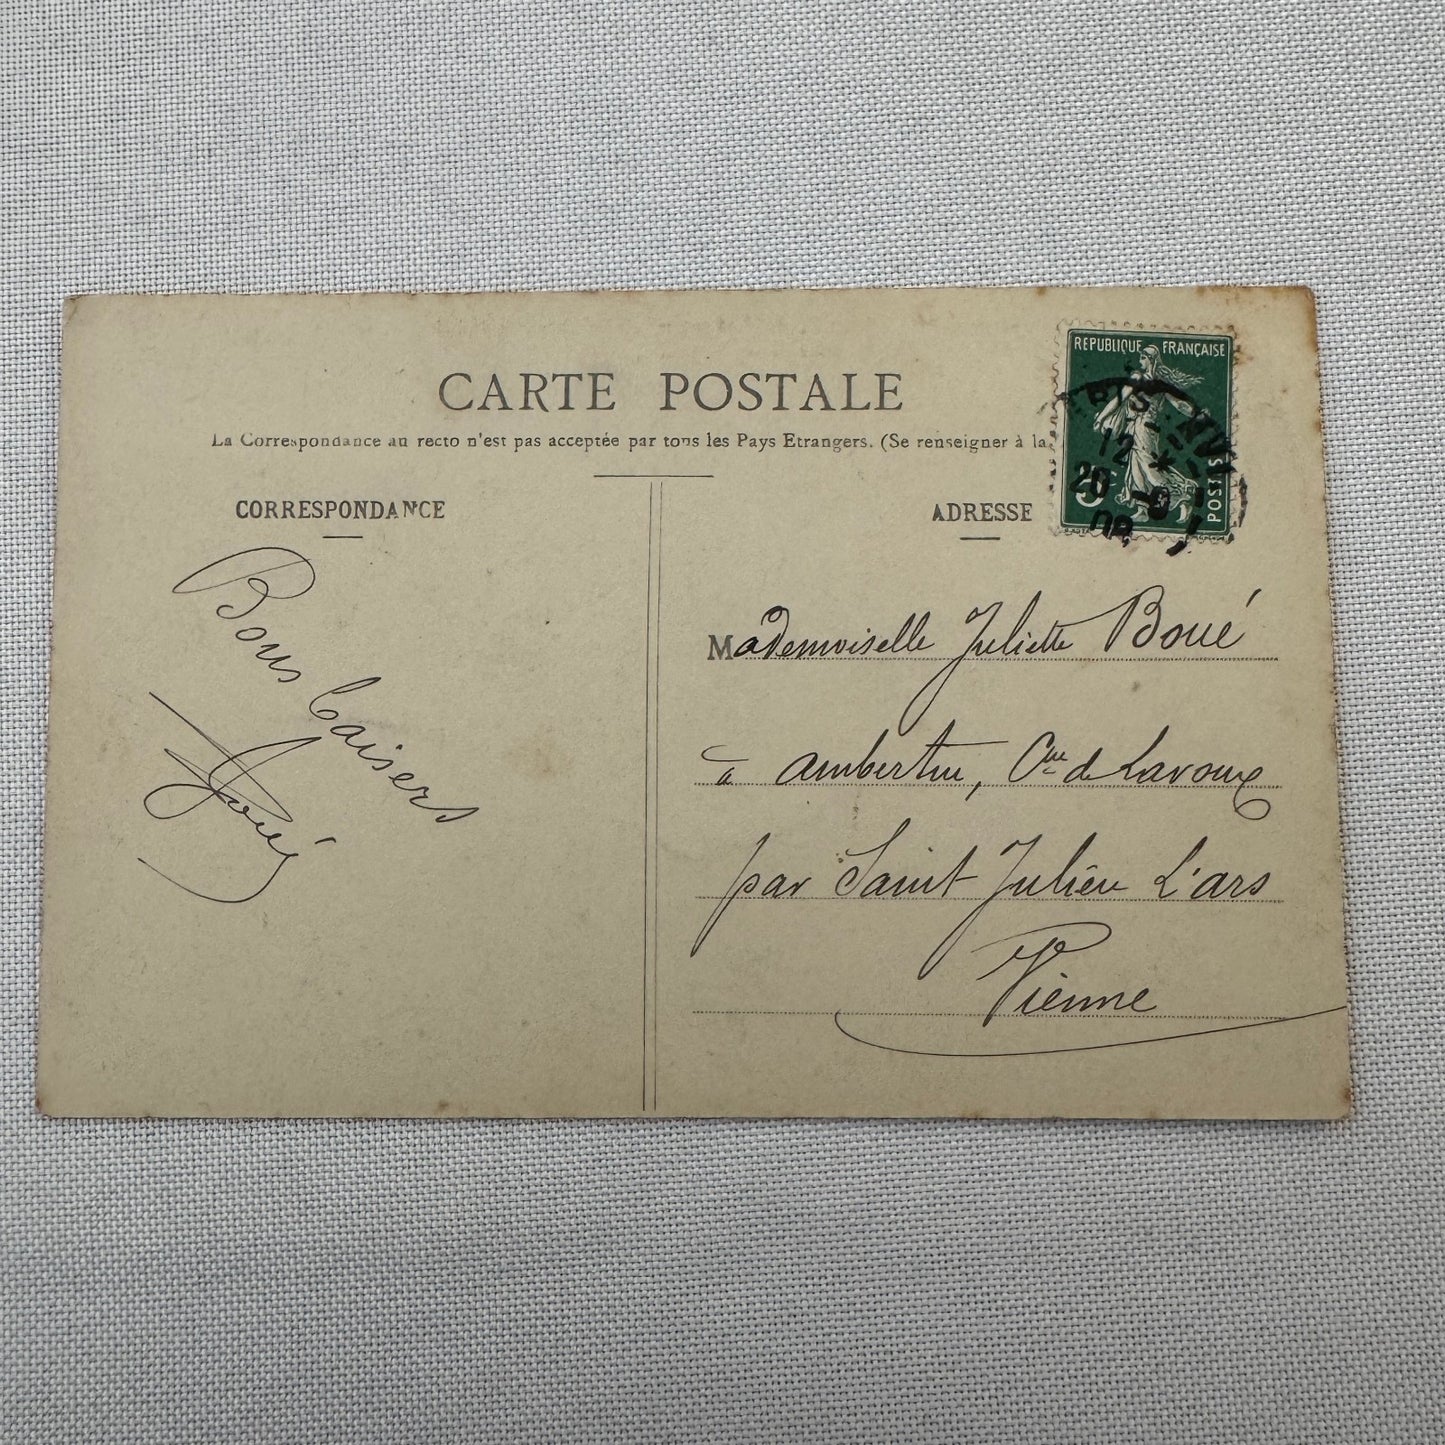 CARTE POSTALE
La Correspondance au recto n'est pas acceptée par tous les Pays Etrangers. (Se renseigner à la
REPUBLIQUE FRANÇAISE
POSTES
12
20 -9
09
CORRESPONDANCE
ADRESSE
Bons baisers
Boué
Mademoiselle Juliette Boué
à Ambertin, Cne de Lavoux
par Saint Julien L'ars
Vienne